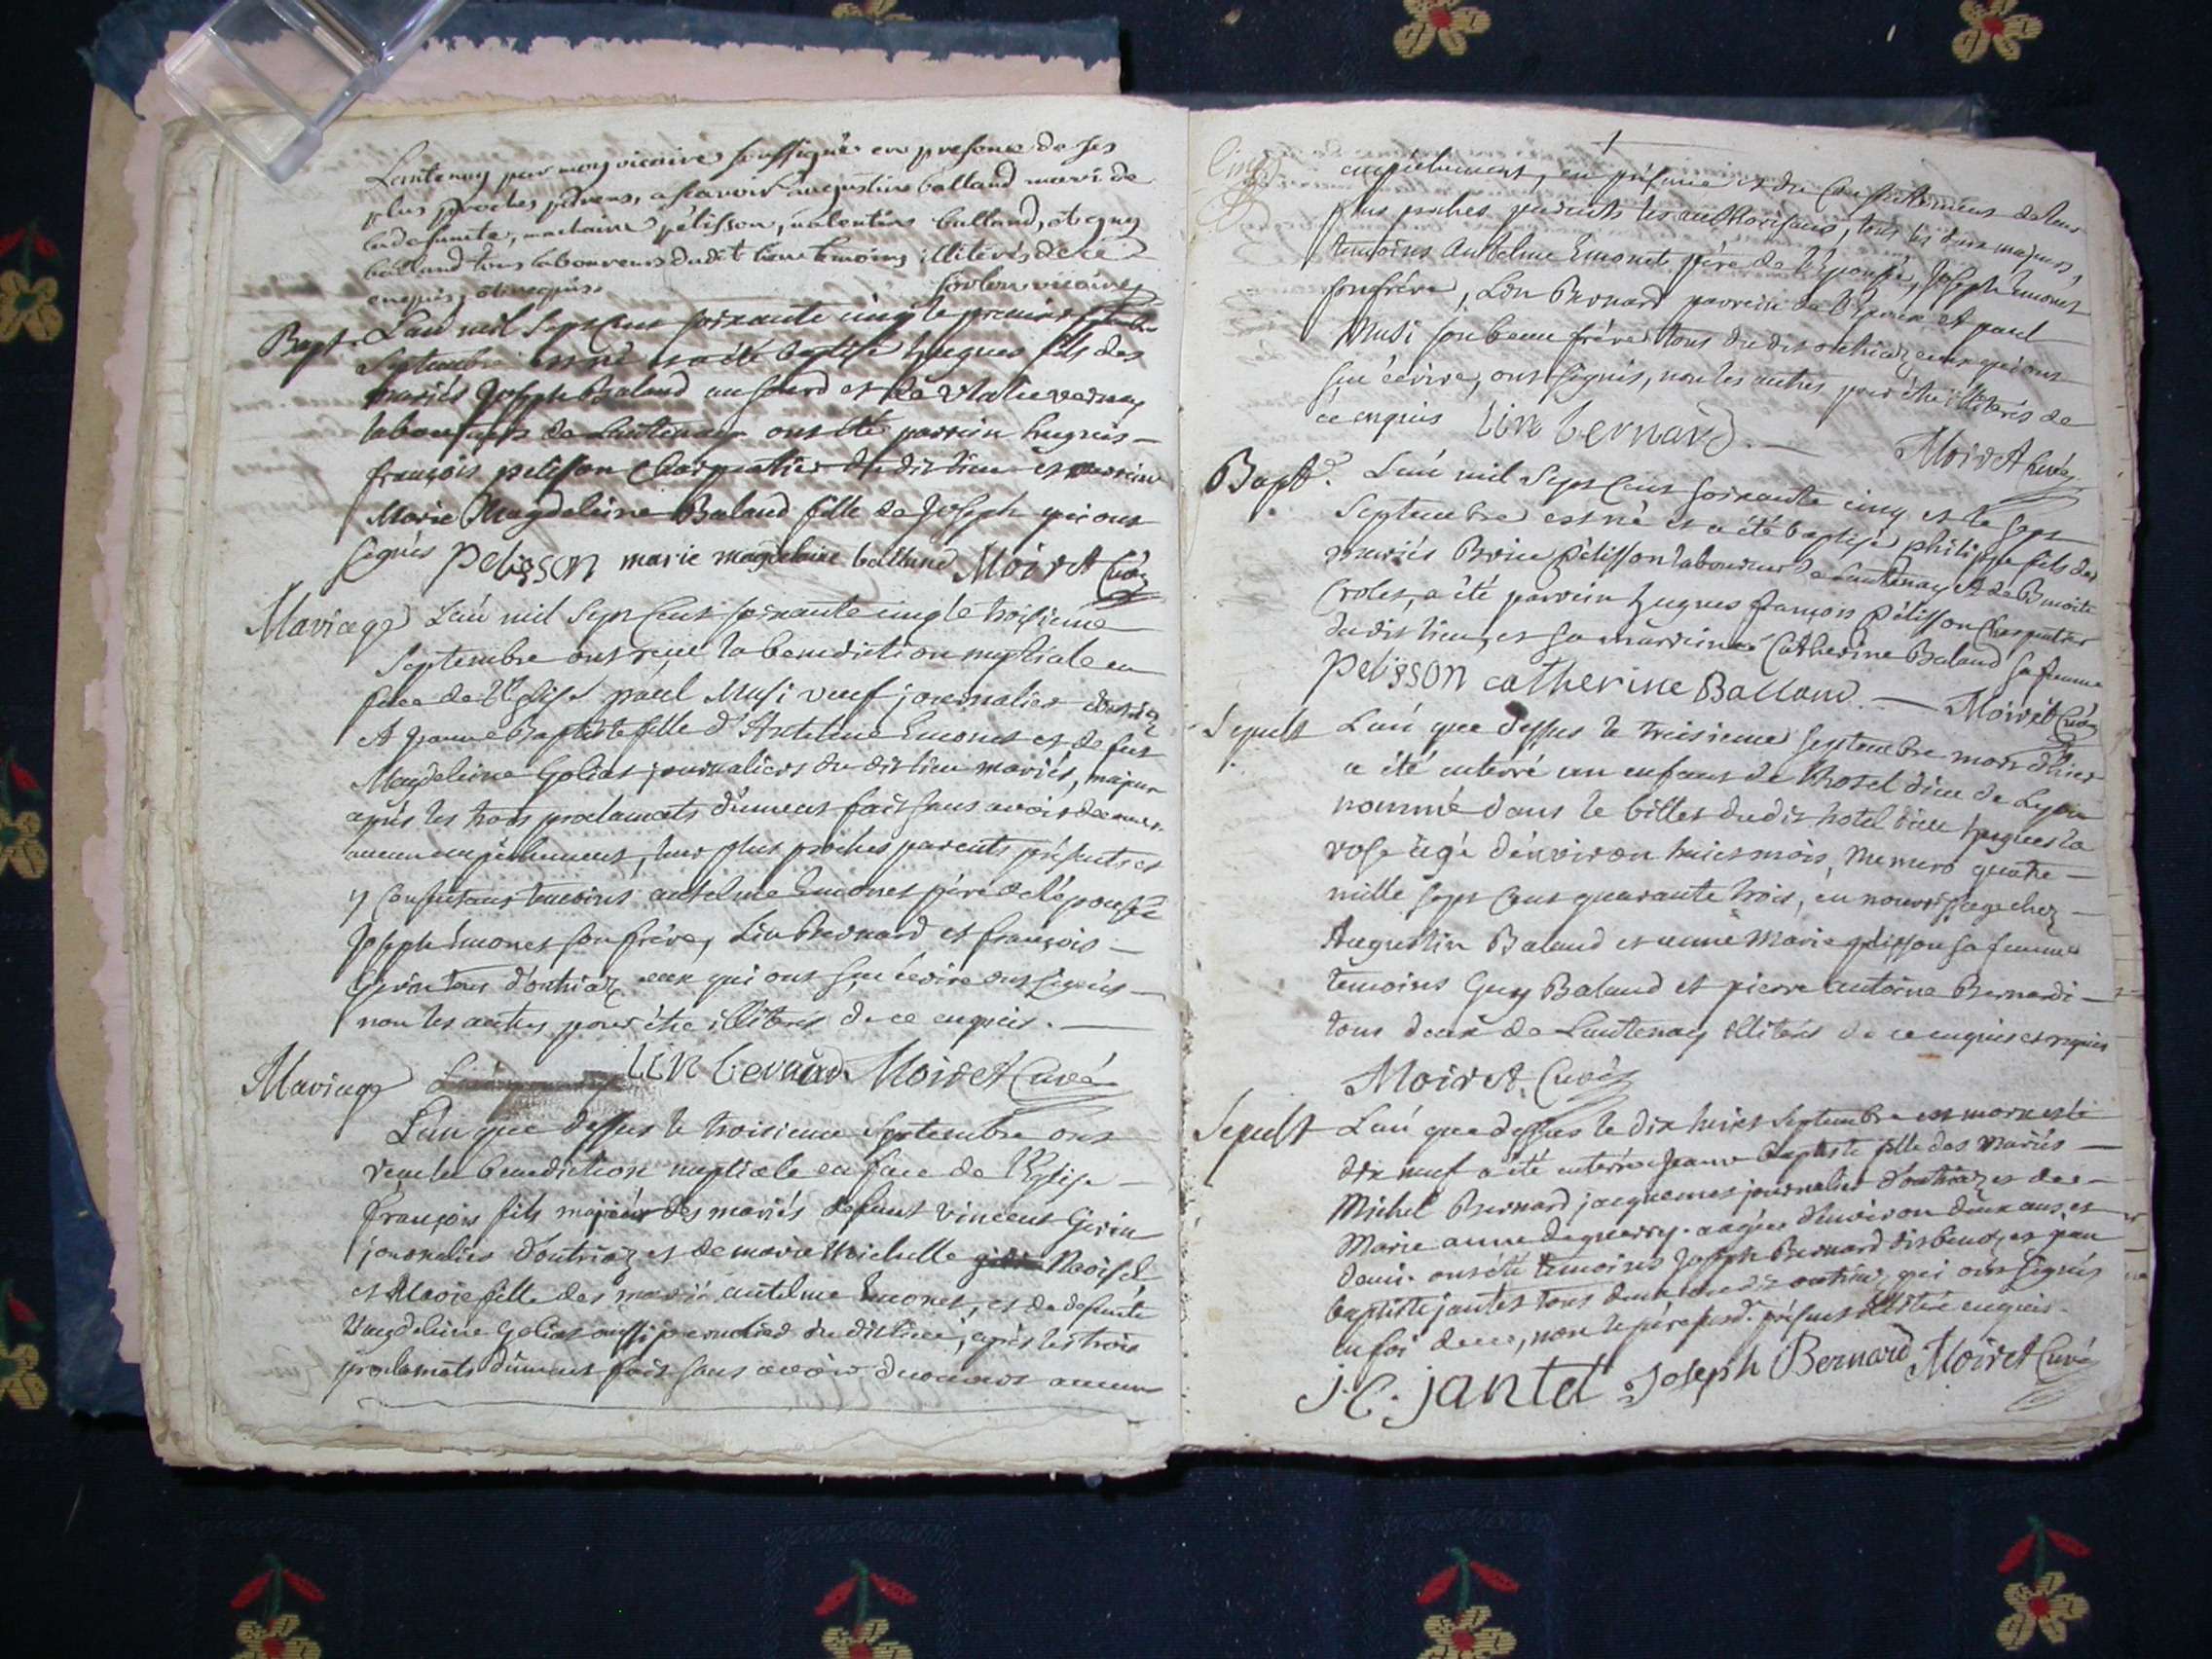 Lantenay par moy vicaire soussigné en presence de ses
plus proches parens, a scavoir augustin balland mari de
la defunte, pélisson, valentin balland, et guy
balland tous laboureurs dudit lieu temoins illiterés de ce
enquis, et requis. vicaire
Bapt. L'an mil sept cent soixante cinq le premier
Septembre est né et a été baptisé hugues fils des
mariés Joseph Baland et de vernay
laboureurs de Lantenay ont été parrein hugues
françois pelisson Charpentier du dit lieu et marreine
Marie Magdeleine Baland fille de Joseph qui ont
signés pelisson marie magdelaine balland Moiret Curé
Mariage L'an mil sept cent soixante cinq le troisieme
Septembre ont reçu la benediction nuptiale en
face de l'Eglise paul Musi veuf journalier
et Jeanne Baptiste fille d'Antelme Emonet et de fut
Magdeleine Golias journaliers du dit lieu mariés, majeur
après les trois proclamats dûment fait sans avoir decouver
aucun empêchement, leur plus proches parents présents et
y consentans temoins antelme Emonet père de l'épouse
Joseph émonet son frère, Lin Bernard et françois
Girin tous d'outriaz eux qui ont sçu écrire ont signés
non les autres pour être illiterés de ce enquis.
lin bernard Moiret Curé
Mariage
L'an que dessus le troisieme Septembre ont
recu la benediction nuptiale en face de l'Eglise
françois fils majeur des mariés defunt vincent Girin
journalier d'outriaz et de marie Michelle
et Marie fille des mariés antelme Emonet, et de defunte
Magdeleine Golias aussi journalier du dit lieu, après les trois
proclamats dûment fait sans avoir decouvert aucun
empêchement, en présence et du Consentement de leur
plus proches parents les authorisans, tous les deux majeurs,
temoins Antelme Emonet père de l'épouse, Joseph Emonet
son frère, Lin Bernard parrein de l'epoux et paul
Musi son beau frère tous du dit outriaz eux qui ont
sçu écrire, ont signés, non les autres pour être illiterés de
ce enquis lin bernard. Moiret Curé
Bapt. L'an mil sept cent soixante cinq et le sept
Septembre est né et a été baptisé philippe fils des
mariés Brice Pélisson laboureur de Lantenay et de Benoite
Croles, a été parrein hugues françois Pélisson Charpentier
du dit lieu, et sa marreine Catherine Baland sa femme
pelisson catherine Balland Moiret Curé
Sepult L'an que dessus le troisieme Septembre mort d'hier
a été enterré un enfant de l'hotel dieu de Lyon
nommé dans le billet du dit hotel dieu hugues la
rose âgé d'environ huict mois, Numero quatre
mille sept cent quarante trois, en nourrissage chez
Augustin Baland et anne Marie pelisson sa femme
temoins Guy Baland et pierre antoine Bernardi
tous deux de Lantenay illiterés de ce enquis et requis
Moiret Curé
Sepult L'an que dessus le dix huict Septembre est morte et le
dix neuf a été enterrée Jeanne Baptiste fille des mariés
Michel Bernard jacquemet journalier d'outriaz et de
Marie anne deguerry. aagée d'environ deux ans et
demi. ont été temoins Joseph Bernard dit et jean
baptiste jantet tous deux du dit outriaz qui ont signés
en foi de ce, non le père présent illitéré enquis.
j. C. jantet Joseph Bernard Moiret Curé